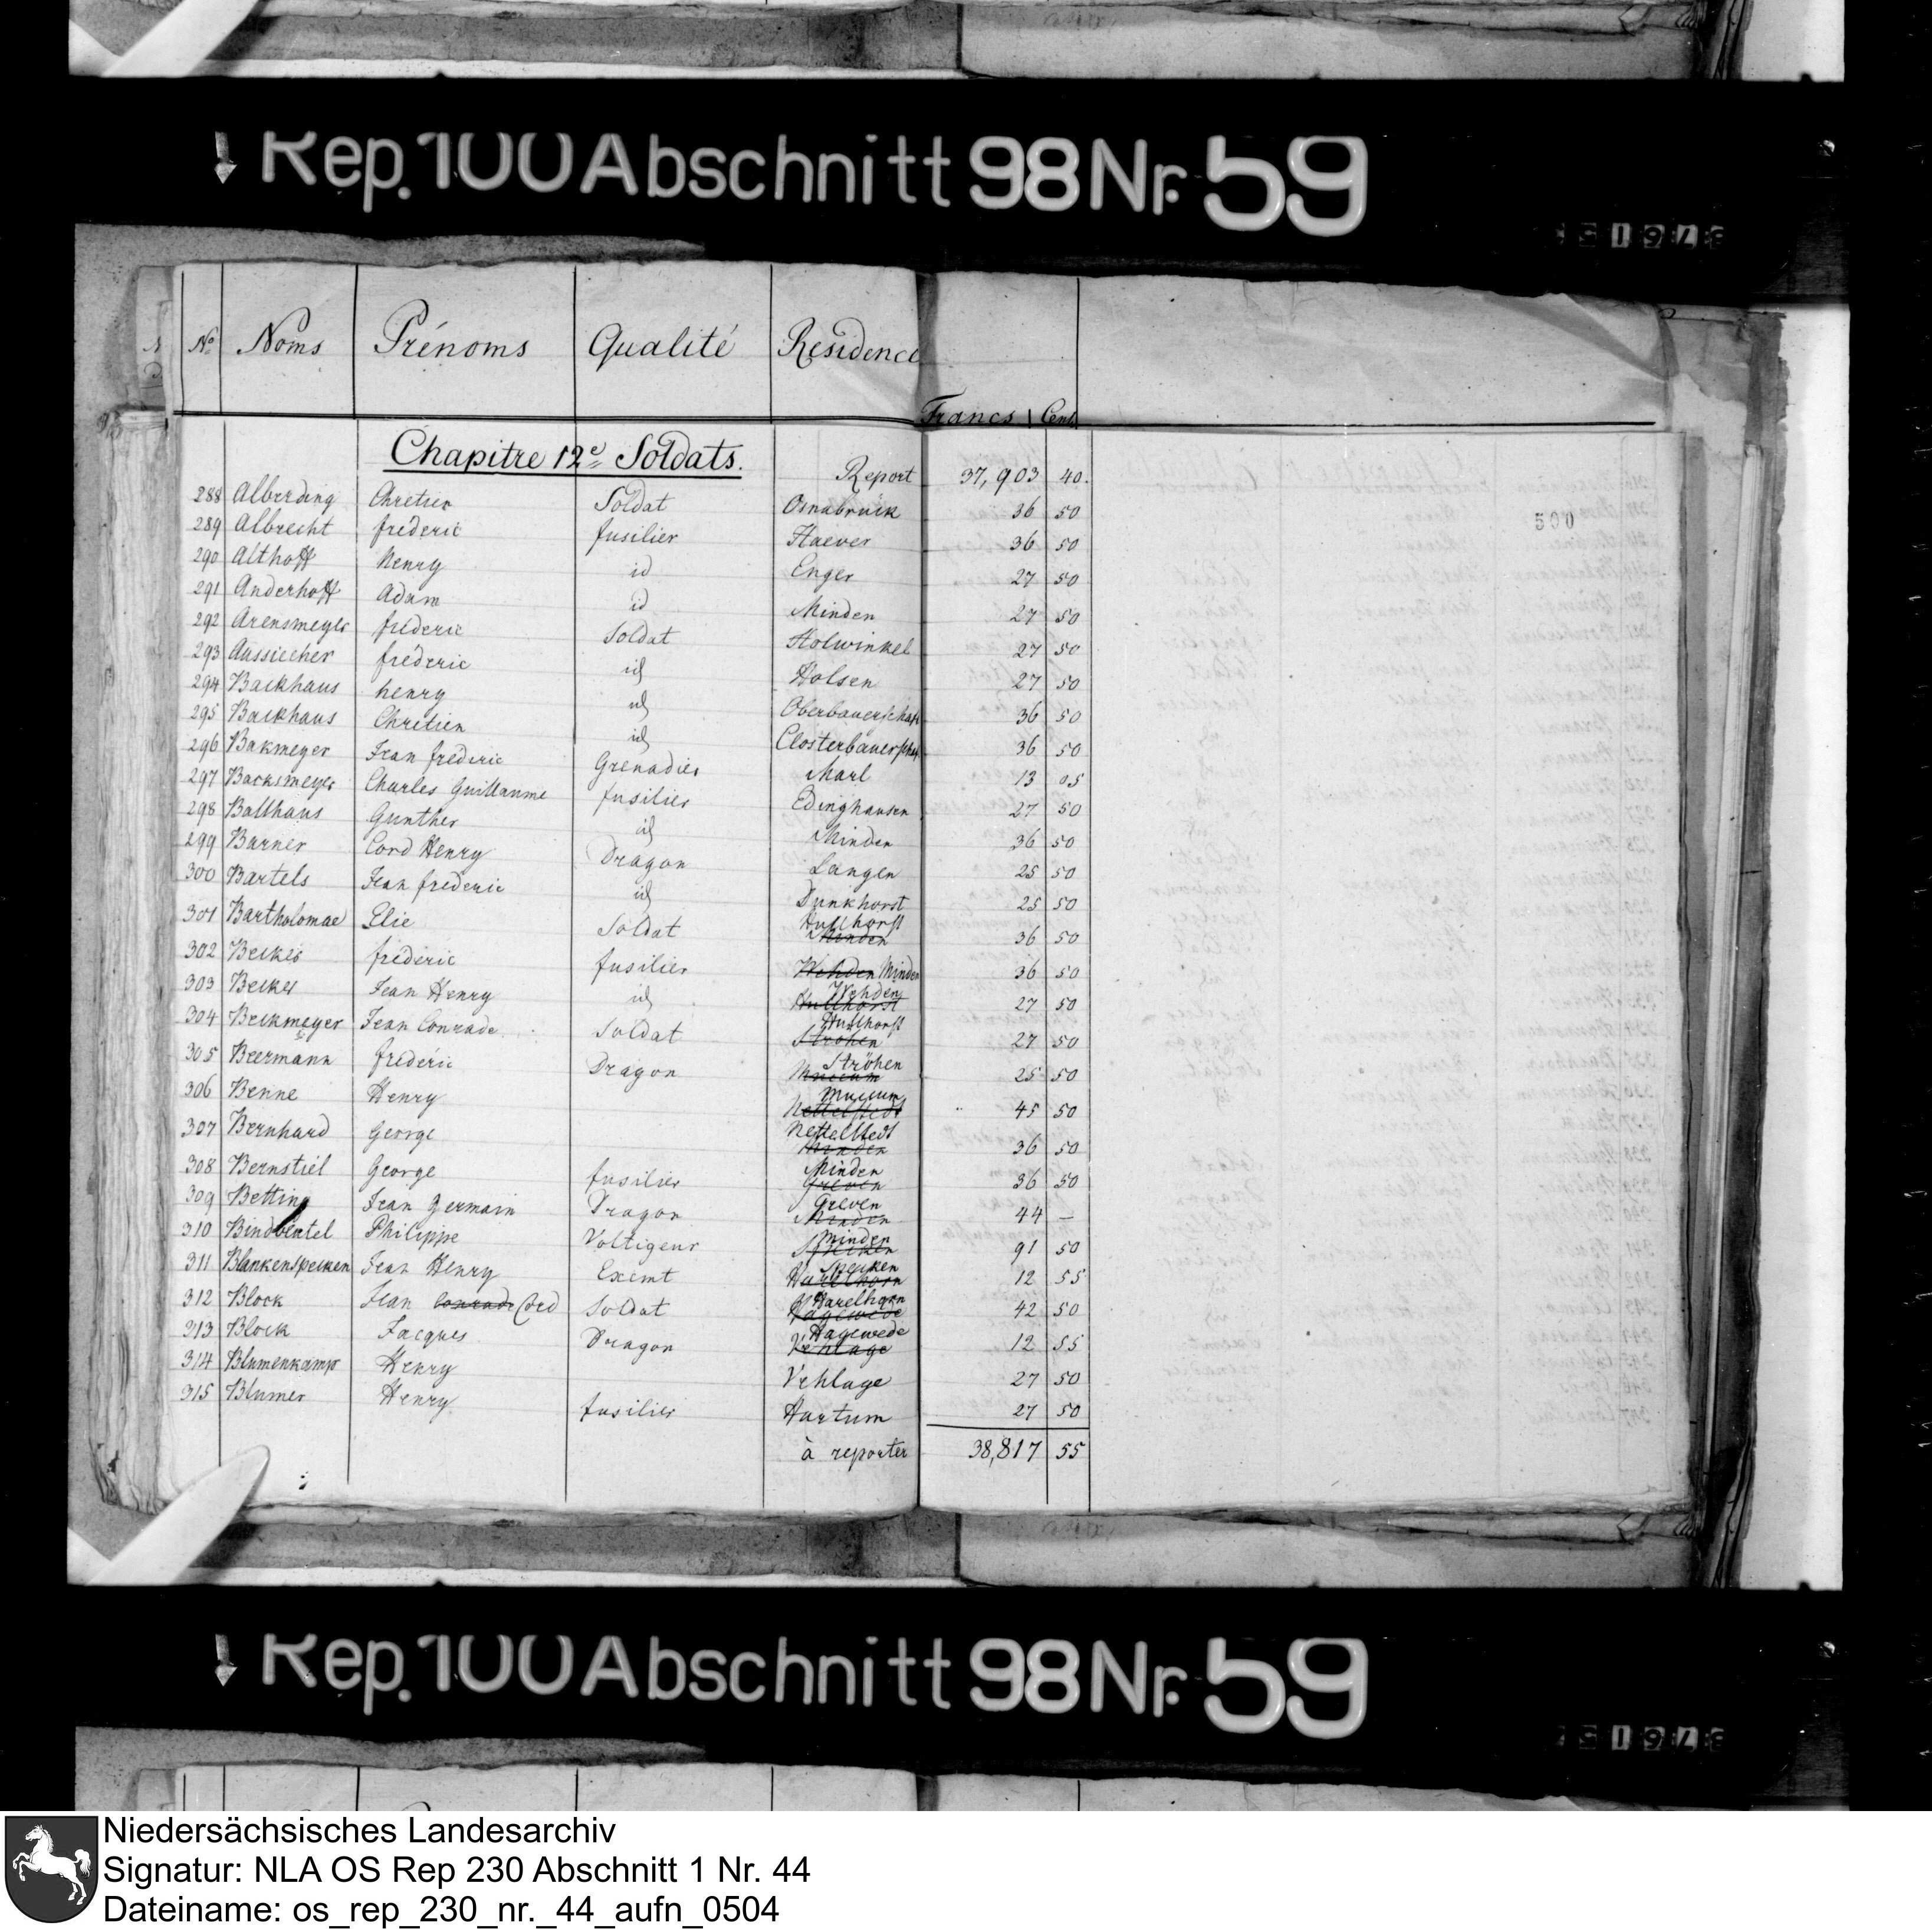 Rep. 100 Abschnitt 98 Nr. 59
No Noms Prénoms Qualité Residence
Francs Cent.
Chapitre 12e Soldats.
Report 37,903 40.
288 Alberding Chretien Soldat Osnabrück 36 50
289 Albrecht frederic fusilier Haever 36 50
290 Althoff Henry id Enger 27 50
291 Anderhoff Adam id Minden 27 50
292 Arensmeyer frederic Soldat Holwinkel 27 50
293 Aussiecher frédéric id Holsen 27 50
294 Backhaus henry id Oberbauerschaft 36 50
295 Backhaus Chretien id Closterbauerschaft 36 50
296 Bakmeyer Jean frederic Grenadier Marl 13 05
297 Backsmeyer Charles Guillaume fusilier Edinghausen 27 50
298 Ballhaus Gunther id Minden 36 50
299 Barner Cord Henry Dragon Langen 25 50
300 Bartels Jean frederic id Dunkhorst 25 50
301 Bartholomae Elie Soldat Hullhorst Minden 36 50
302 Becker frederic fusilier Wehden Minden 36 50
303 Becker Jean Henry id Wehden Hullhorst 27 50
304 Beckmeyer Jean Conrade Soldat Hullhorst Ströhen 27 50
305 Beermann frédéric Dragon Ströhen 25 50
306 Benne Henry Nettelstedt 45 50
307 Bernhard George Nettelstedt Minden 36 50
308 Bernstiel George fusilier Minden Greven 36 50
309 Betting Jean Germain Dragon Greven Minden 44 —
310 Bindbeutel Philippe Voltigeur Minden Spenken 91 50
311 Blankenspecken Jean Henry Exemt Spenken Harelhorn 12 55
312 Block Jean Conrade Cord Soldat Harelhorn Hagewede 42 50
313 Block Jacques Dragon Hagewede Vehlage 12 55
314 Blumenkamp Henry Vehlage 27 50
315 Blumer Henry fusilier Hartum 27 50
à reporter 38,817 55
500
Rep. 100 Abschnitt 98 Nr. 59
Niedersächsisches Landesarchiv
Signatur: NLA OS Rep 230 Abschnitt 1 Nr. 44
Dateiname: os_rep_230_nr._44_aufn_0504